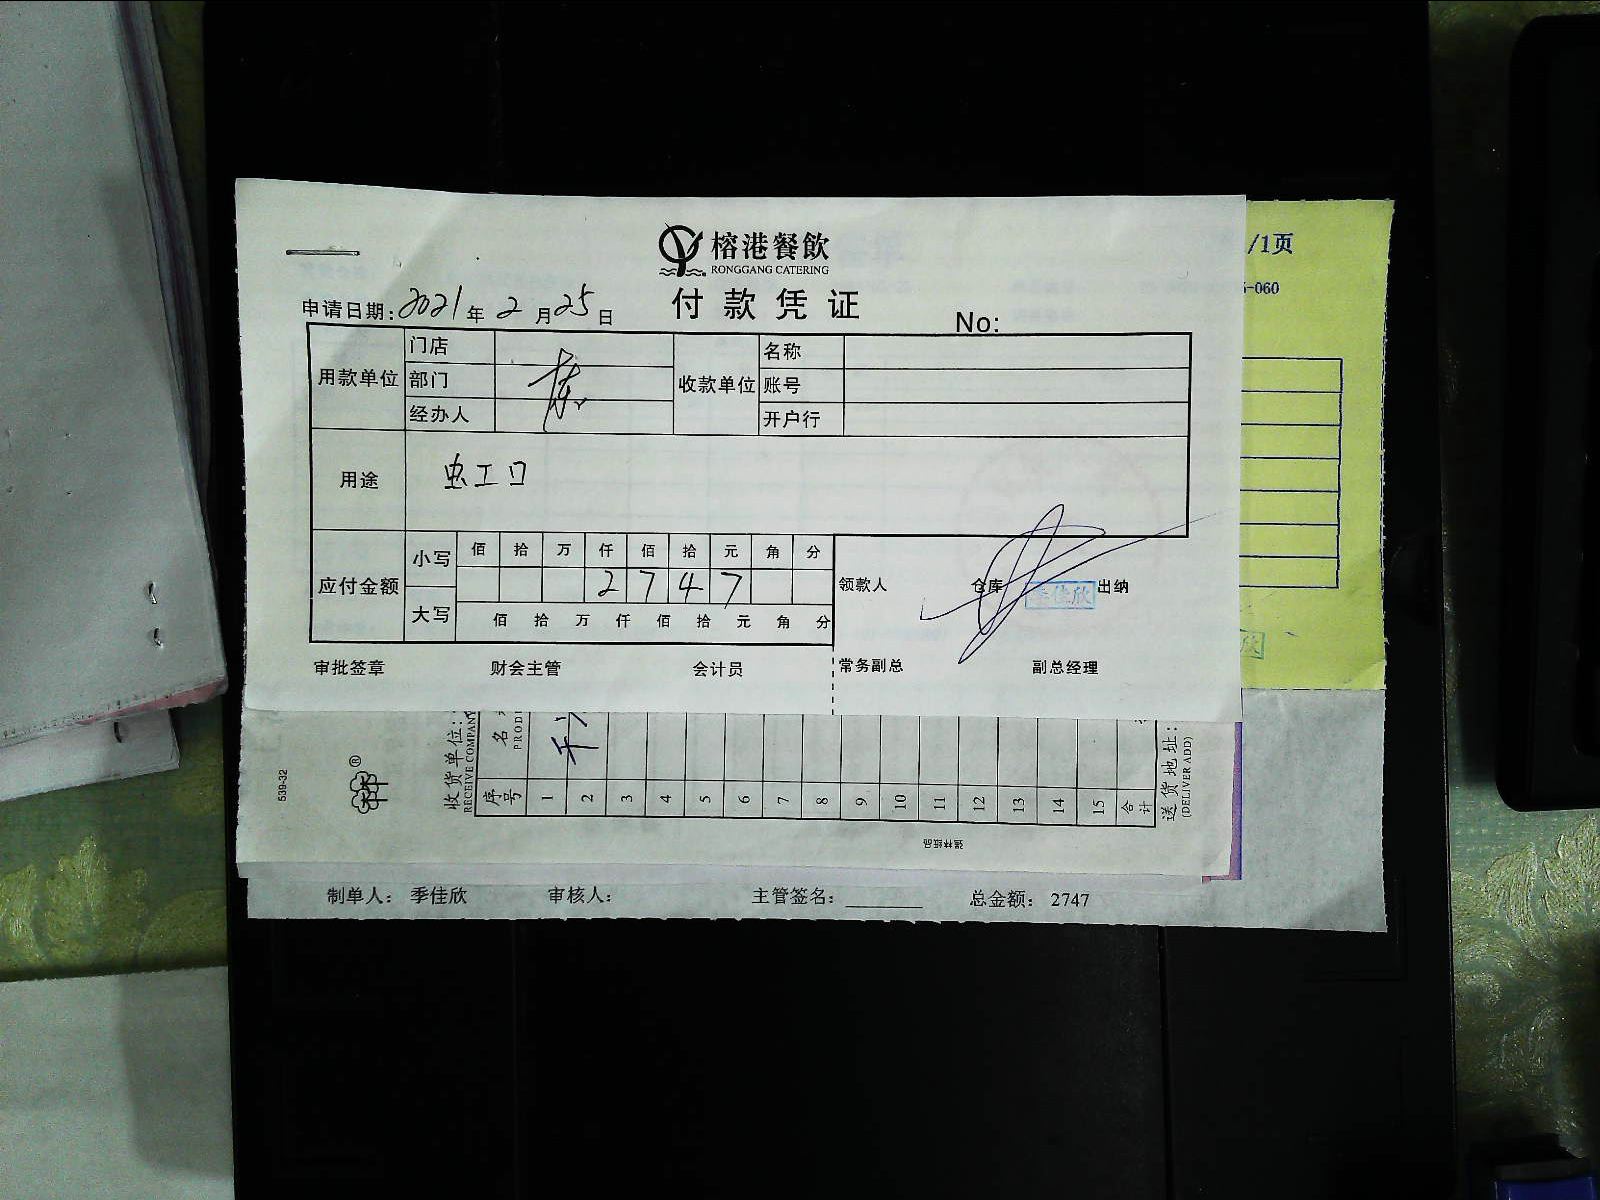 榕港餐飲
RONGGANG CATERING
付款凭证
/1页
-060
申请日期:2021年2月25日
No:
用款单位
门店
部门
经办人
收款单位
名称
账号
开户行
用途
虹口
应付金额
小写
佰 拾 万 仟 佰 拾 元 角 分
2 7 4 7
大写
佰 拾 万 仟 佰 拾 元 角 分
领款人
仓库
季佳欣
出纳
审批签章
财会主管
会计员
常务副总
副总经理
539-32
®
收货单位:
RECEIVE COMPANY
序号
1 2 3 4 5 6 7 8 9 10 11 12 13 14 15 合计
送货地址:
(DELIVER ADD)
制单人: 季佳欣 审核人: 主管签名: 总金额: 2747